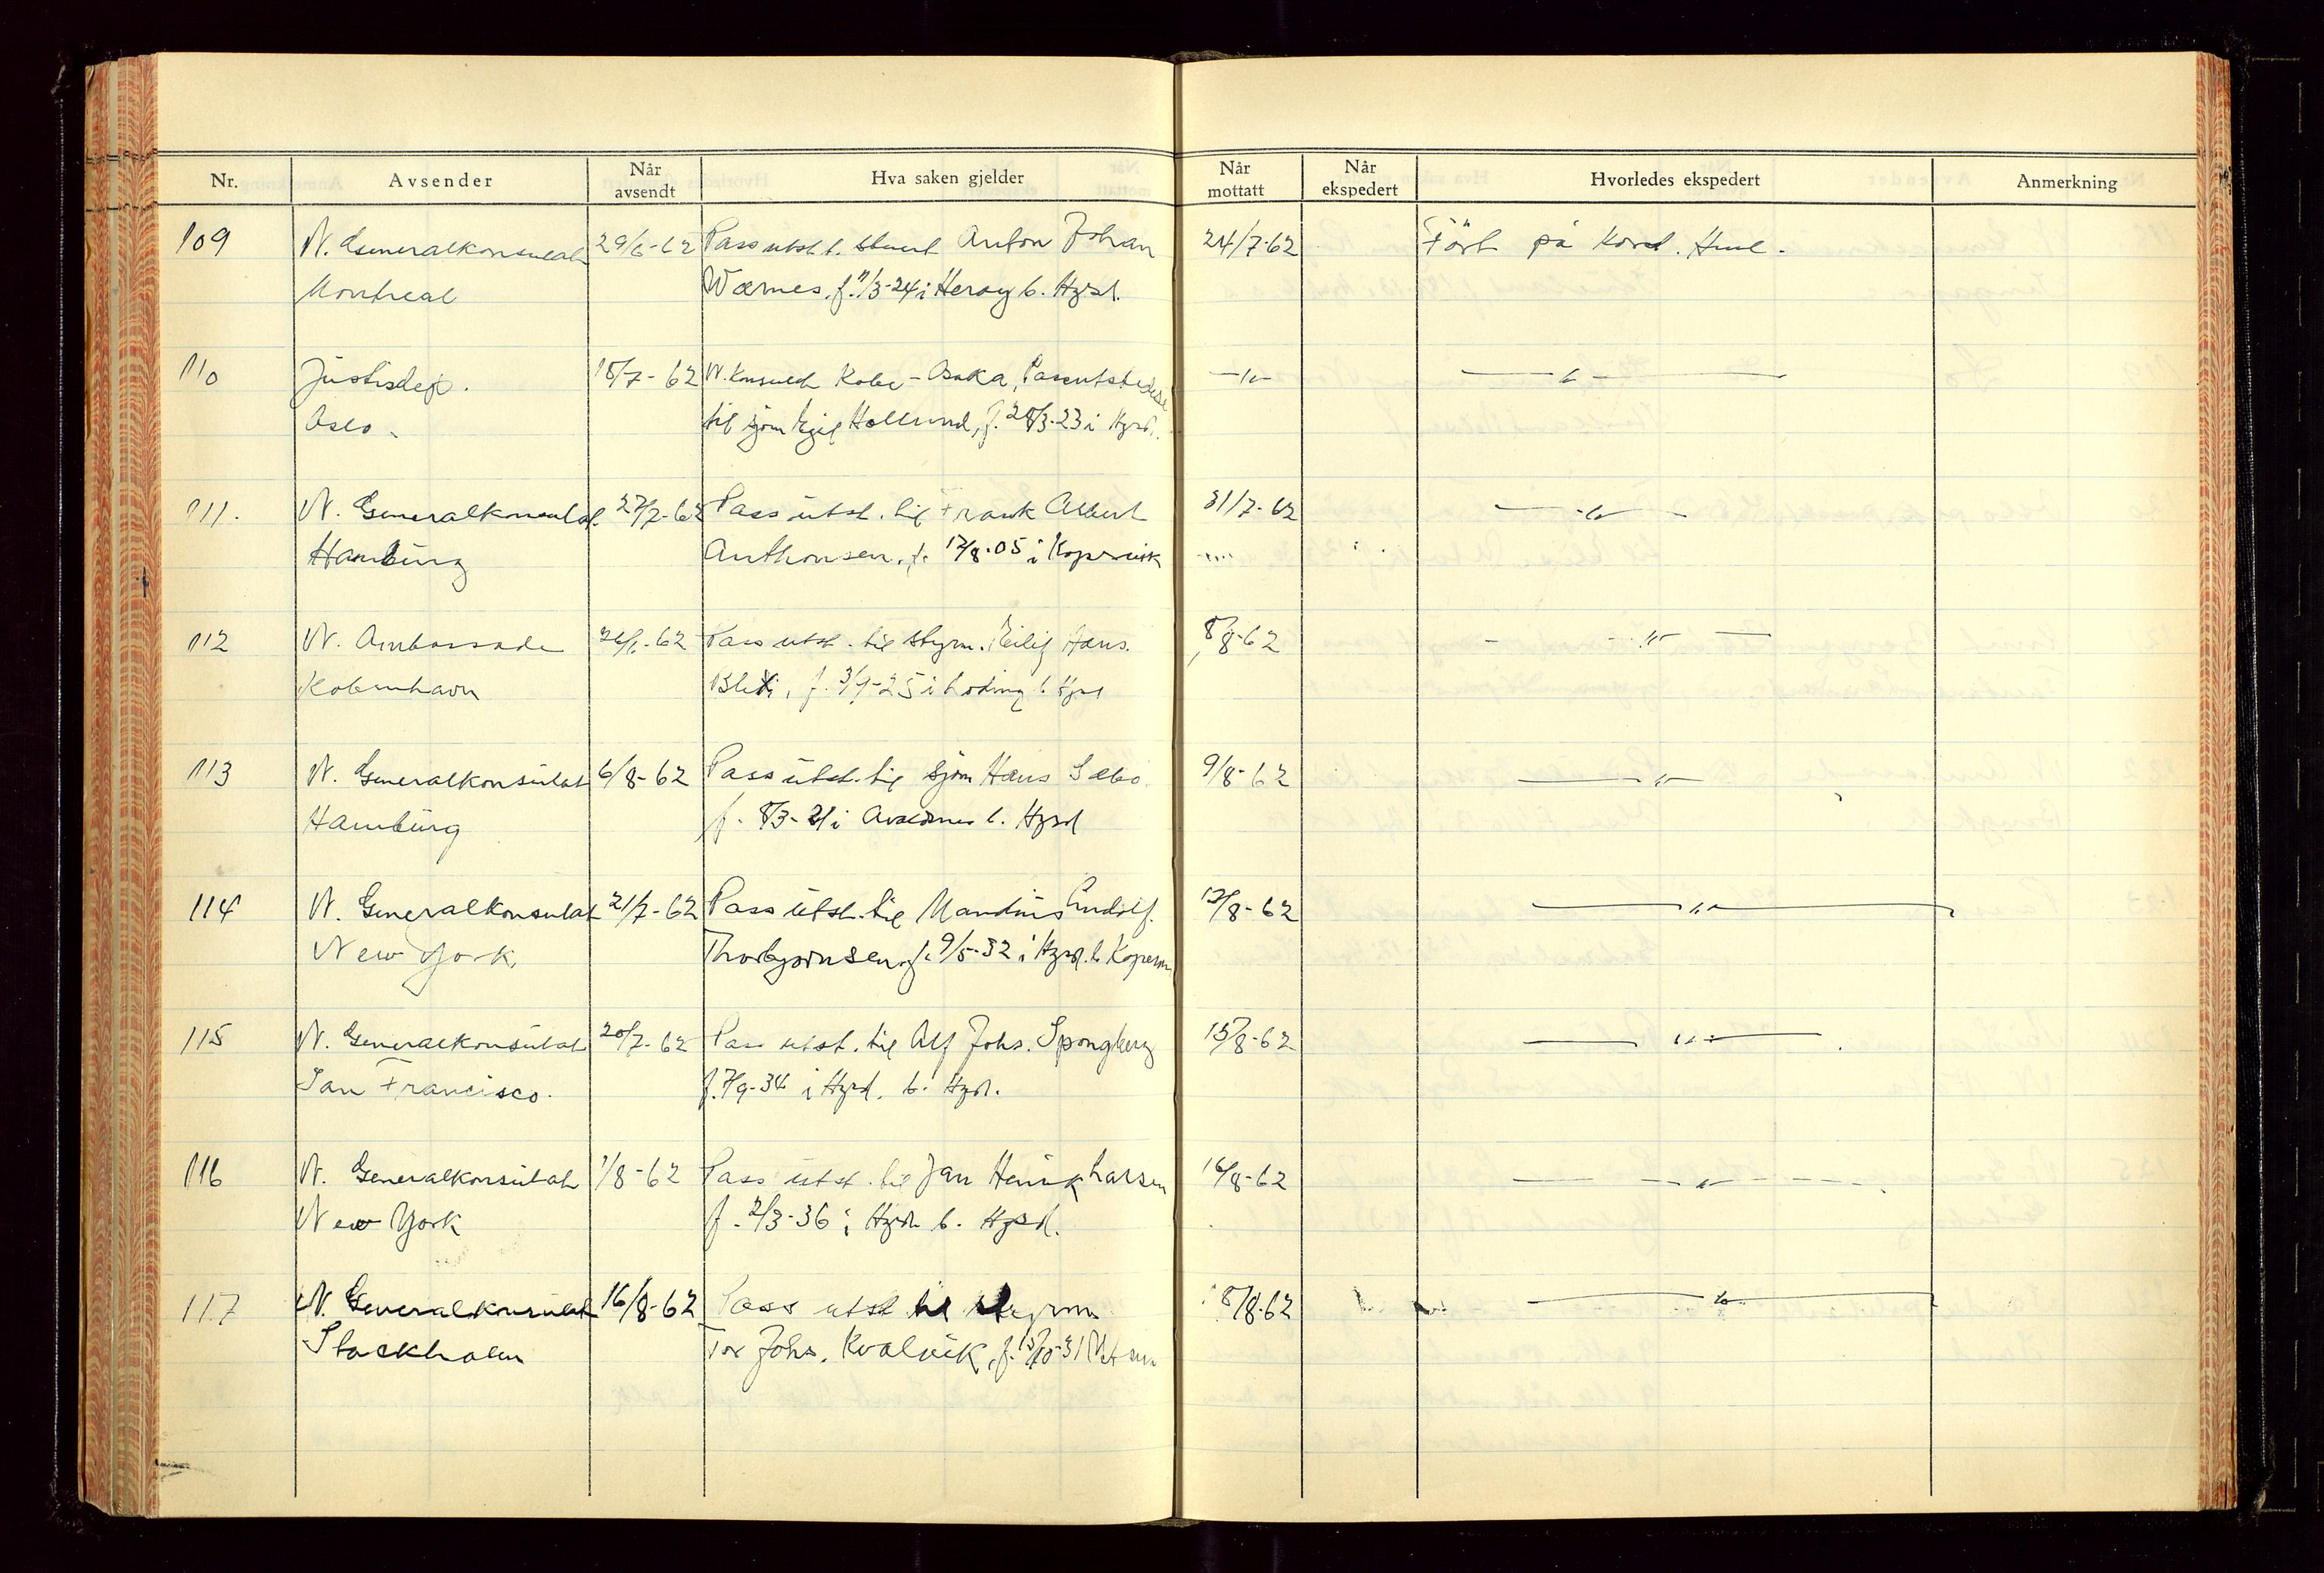 Nr. Avsender Når avsendt Hva saken gjelder Når mottatt Når ekspedert Hvorledes ekspedert Anmerkning
109 N. Generalkonsulat 29/6-62 Pass utst. t. stuert Anton Johan 24/7-62 Ført på
Montreal Wærnes, f. 11/3-24 i Herøy b. Hgsd.
110 Justisdep. 18/7-62 N. Konsulat Kobe-Osaka, Passutstedelse -"-
Oslo. til sjøm Egil Hollund, f. 28/3-23 i Hgsd.
111. N. Generalkonsulat 27/7-62 Pass utst. til Frank Albert 31/7-62 -"-
Hamburg Anthonsen, f. 12/8-05 i Kopervik
112 N. Ambassade 62 Pass utst. til styrm. Hans. 8/8-62 -"-
København f. 25 i b. Hgsd
113 N. Generalkonsulat 6/8-62 Pass utst. til sjøm Hans Sæbø 9/8-62 -"-
Hamburg f. 8/3-21 i Avaldsnes b. Hgsd
114 N. Generalkonsulat 21/7-62 Pass utst. til Mandius Rudolf 13/8-62 -"-
New York Thorbjørnsen, f. 9/5-32 i Hgsd. b Koperv.
115 N. Generalkonsulat 20/7-62 Pass utst. til Alf Johs. Spongberg 15/8-62 -"-
San Francisco. f. 7/9-34 i Hgsd. b. Hgsd.
116 N. Generalkonsulat 7/8-62 Pass utst. til Jan Henrik Larsen 16/8-62 -"-
New York f. 2/3-36 i Hgsd b. Hgsd.
117 N. Generalkonsulat 16/8-62 Pass utst til styrm. 18/8-62 -"-
Stockholm Tor Johs. Kvalvik, f. 15/10-31